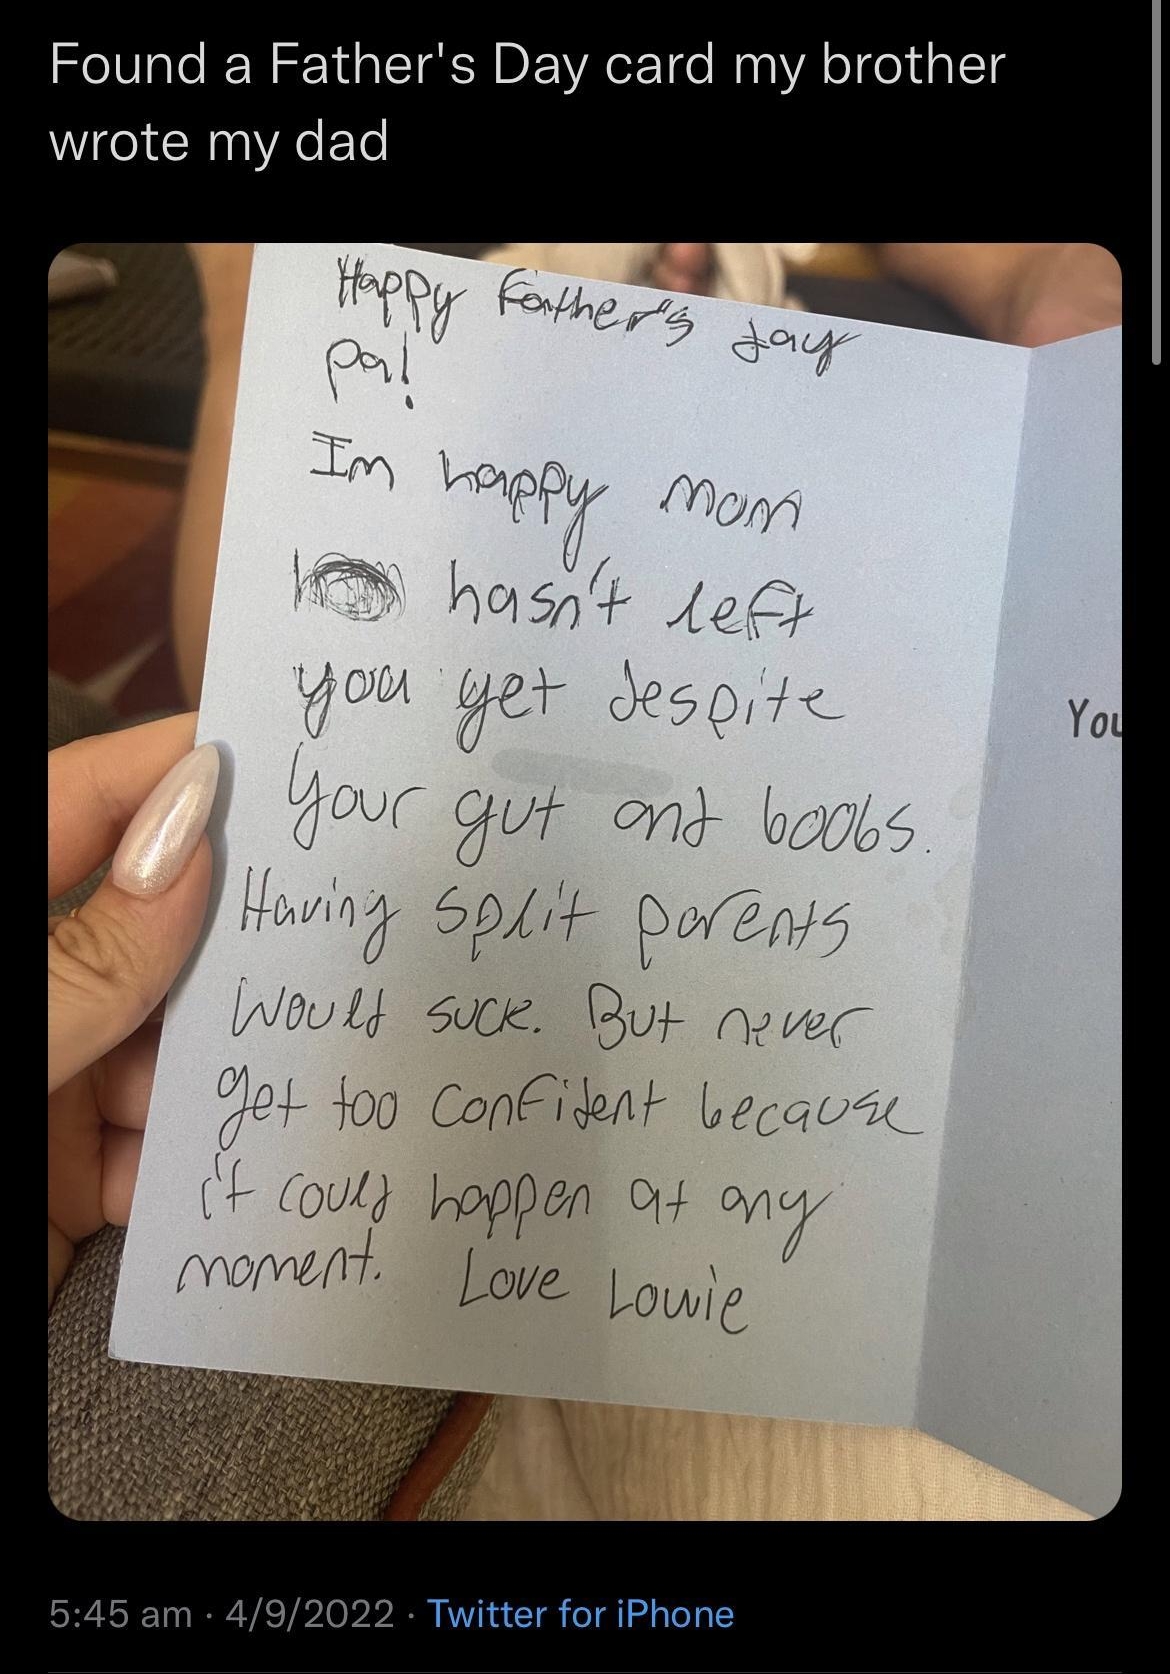 Found a Father's Day card my brother
wrote my dad
Happy Father's day
pa!
Im happy mom
hasn't left
you yet despite
your gut and boobs.
Having split parents
would suck. But never
get too confident because
it could happen at any
moment. Love Lowie
You
5:45 am · 4/9/2022 · Twitter for iPhone